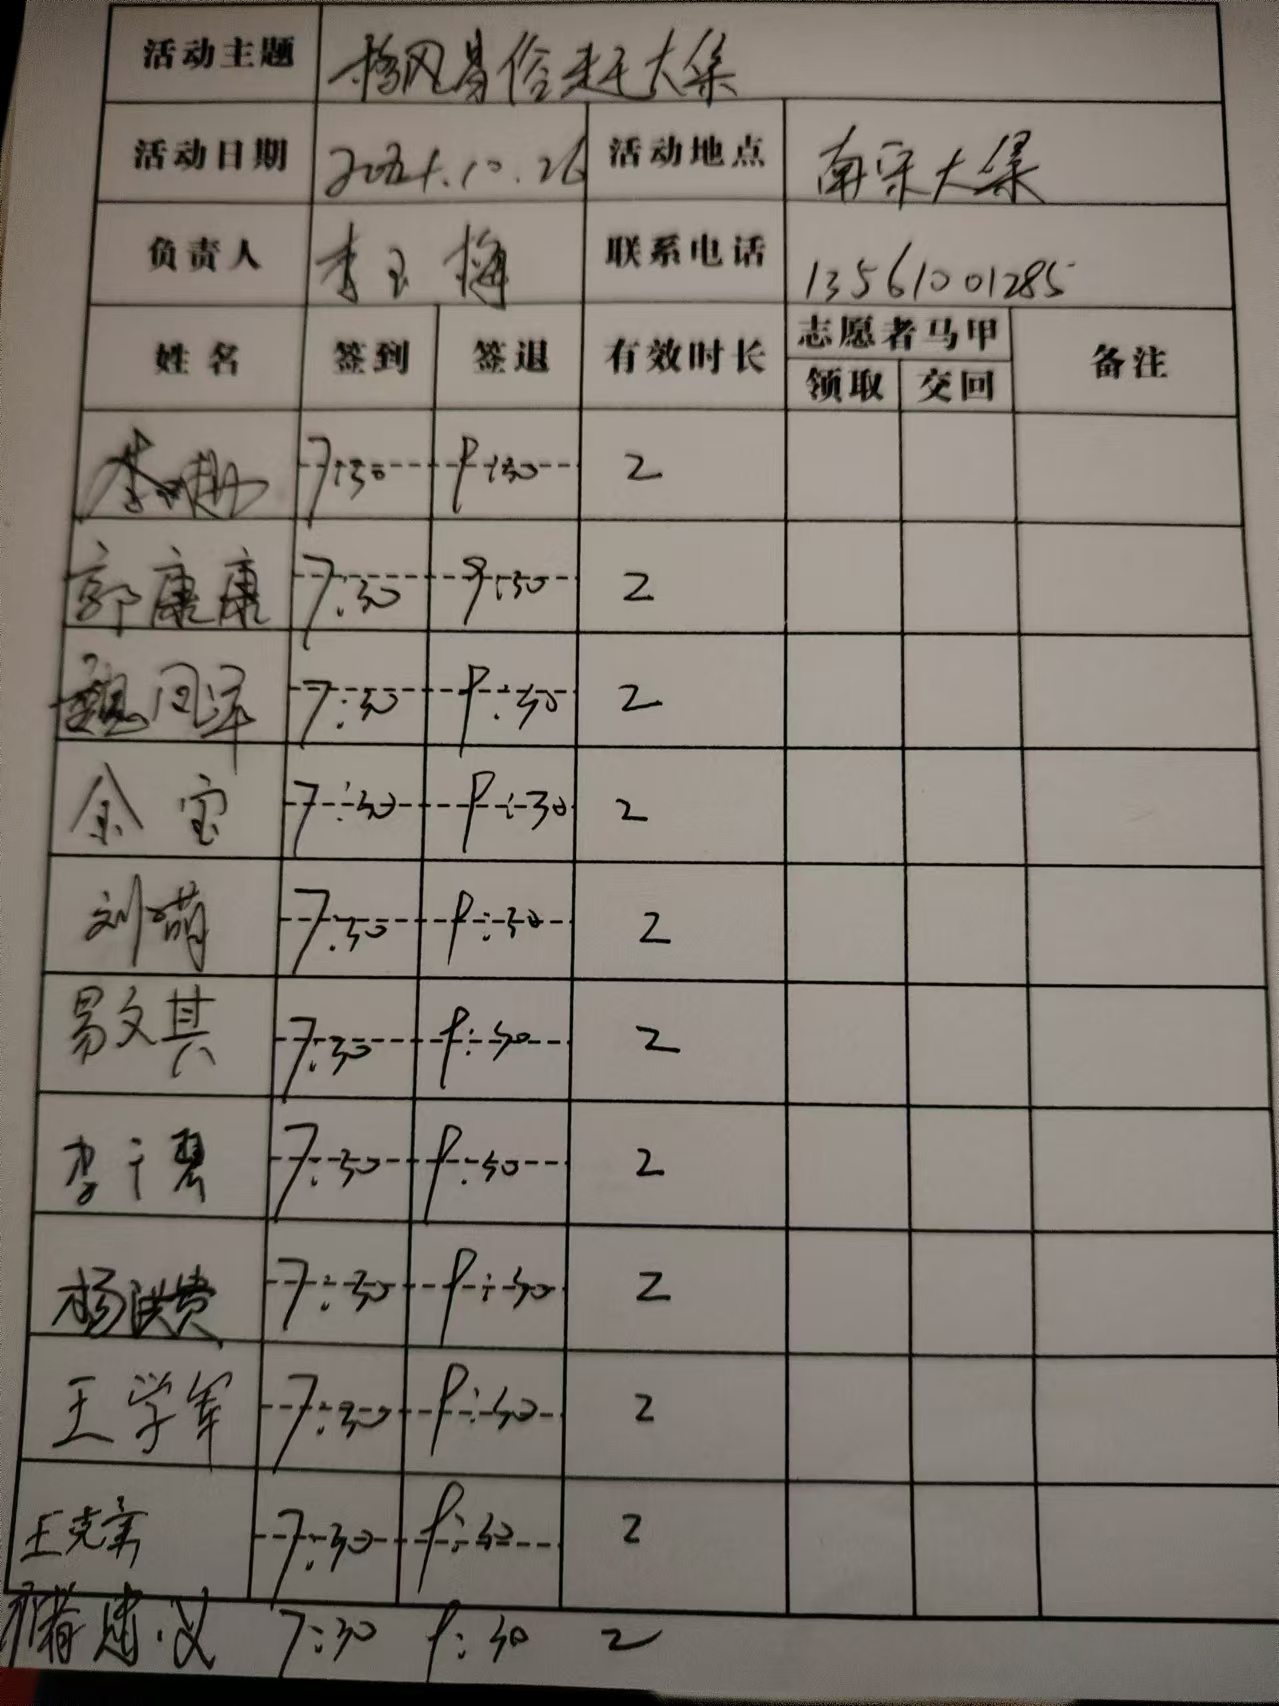 活动主题 移风易俗赶大集
活动日期 2024.10.26 活动地点 南宋大集
负责人 李玉梅 联系电话 13561001285
姓名 签到 签退 有效时长 志愿者马甲 备注
领取 交回
7:30 9:30 2
郭康康 7:30 9:30 2
魏同洋 7:30 9:30 2
金宝 7:30 9:30 2
刘萌 7:30 9:30 2
易文其 7:30 9:30 2
李千琴 7:30 9:30 2
杨洪贵 7:30 9:30 2
王学军 7:30 9:30 2
王克 7:30 9:30 2
7:30 9:30 2